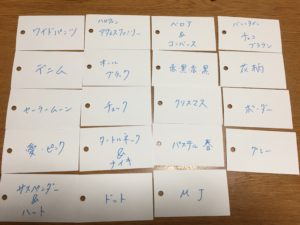 ワイドパンツ
ハロウィン
ベロア
&
コンバース
チョコ
ブラウン
デニム
オール
ブラック
赤黒赤黒
花柄
セーラームーン
チョーク
クリスマス
ボーダー
愛・ピンク
タートルネック
&
ナイキ
パステル春
グレー
サスペンダー
&
ハート
ドット
MJ